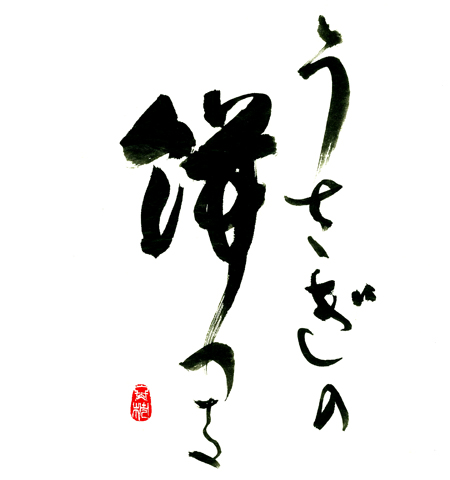 うさぎの
餅つき